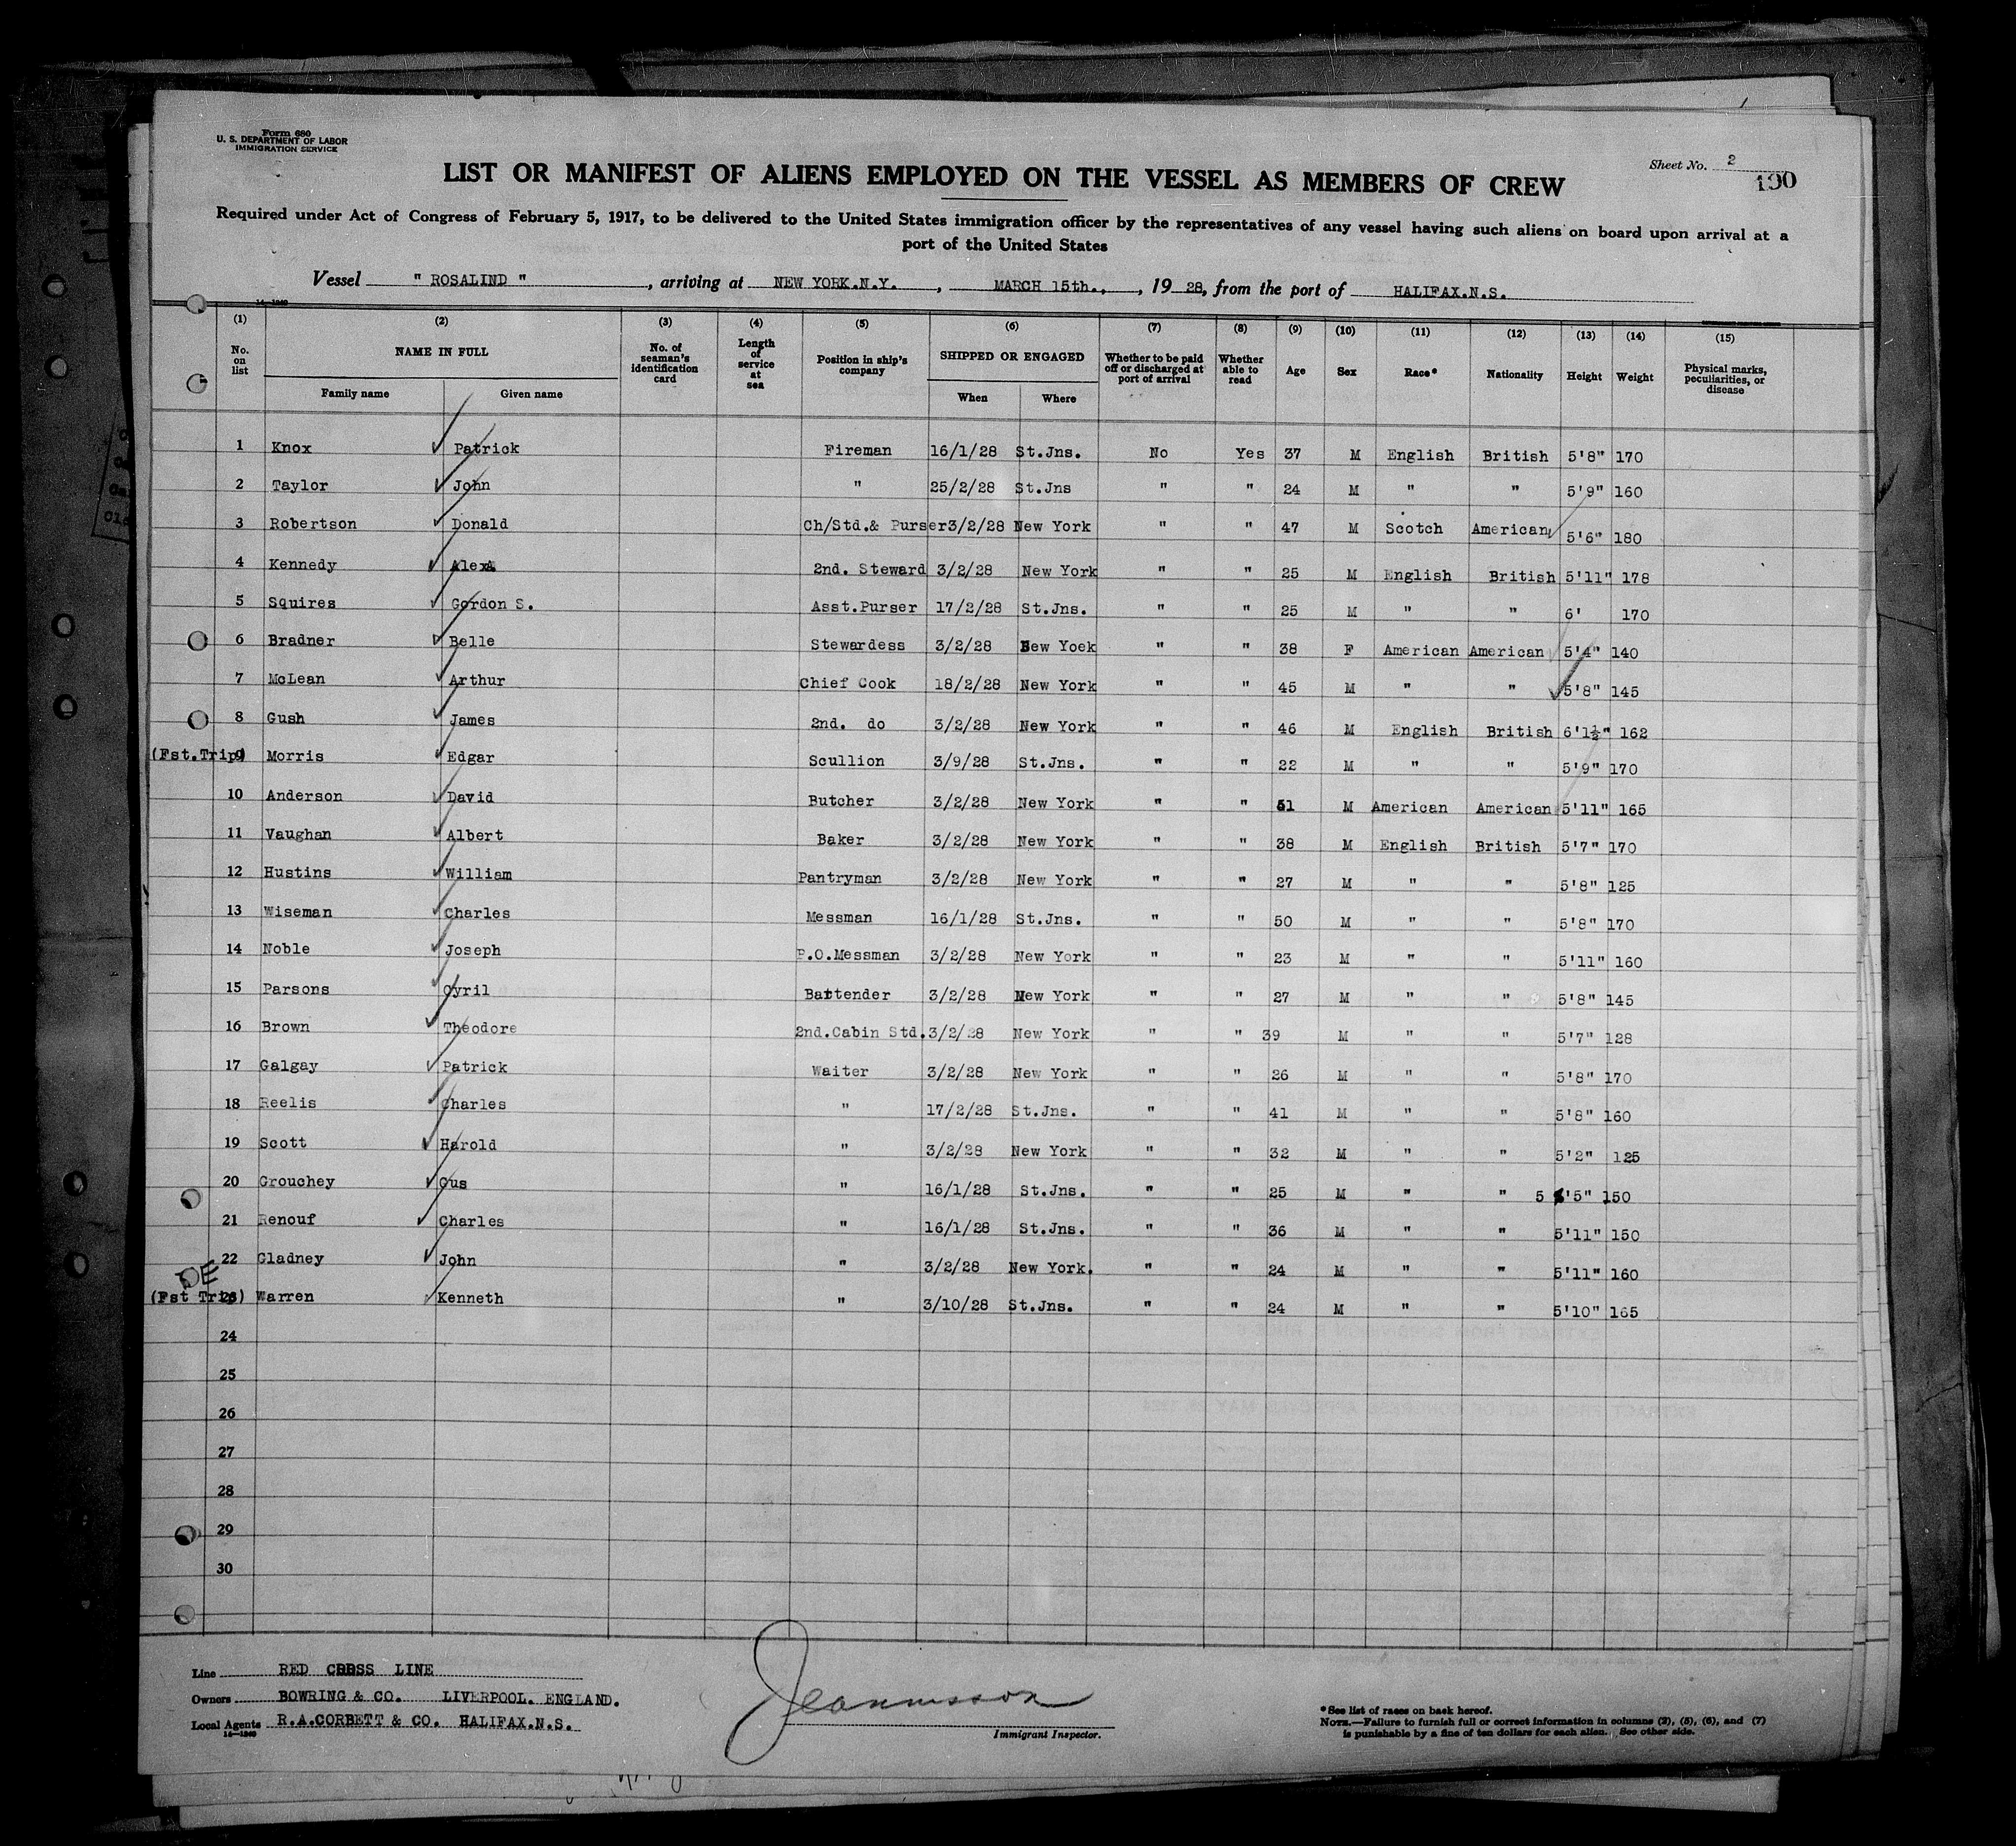 Form 680
U. S. DEPARTMENT OF LABOR
IMMIGRATION SERVICE
Sheet No. 2
190
LIST OR MANIFEST OF ALIENS EMPLOYED ON THE VESSEL AS MEMBERS OF CREW
Required under Act of Congress of February 5, 1917, to be delivered to the United States immigration officer by the representatives of any vessel having such aliens on board upon arrival at a
port of the United States
Vessel " ROSALIND " , arriving at NEW YORK.N.Y. , MARCH 15th., , 19 28, from the port of HALIFAX.N.S.
14-1240
(1) (2) (3) (4) (5) (6) (7) (8) (9) (10) (11) (12) (13) (14) (15)
No. on list NAME IN FULL Family name Given name No. of seaman's identification card Length of service at sea Position in ship's company SHIPPED OR ENGAGED When Where Whether to be paid off or discharged at port of arrival Whether able to read Age Sex Race* Nationality Height Weight Physical marks, peculiarities, or disease
1 Knox Patrick Fireman 16/1/28 St.Jns. No Yes 37 M English British 5'8" 170
2 Taylor John " 25/2/28 St.Jns " " 24 M " " 5'9" 160
3 Robertson Donald Ch/Std.& Purser 3/2/28 New York " " 47 M Scotch American 5'6" 180
4 Kennedy AlexA 2nd. Steward 3/2/28 New York " " 25 M English British 5'11" 178
5 Squires Gordon S. Asst.Purser 17/2/28 St.Jns. " " 25 M " " 6' 170
6 Bradner Belle Stewardess 3/2/28 New Yoek " " 38 F American American 5'4" 140
7 McLean Arthur Chief Cook 18/2/28 New York " " 45 M " " 5'8" 145
8 Gush James 2nd. do 3/2/28 New York " " 46 M English British 6'1½" 162
(Fst.Trip) 9 Morris Edgar Scullion 3/9/28 St.Jns. " " 22 M " " 5'9" 170
10 Anderson David Butcher 3/2/28 New York " " 51 M American American 5'11" 165
11 Vaughan Albert Baker 3/2/28 New York " " 38 M English British 5'7" 170
12 Hustins William Pantryman 3/2/28 New York " " 27 M " " 5'8" 125
13 Wiseman Charles Messman 16/1/28 St.Jns. " " 50 M " " 5'8" 170
14 Noble Joseph P.O.Messman 3/2/28 New York " " 23 M " " 5'11" 160
15 Parsons Cyril Bartender 3/2/28 New York " " 27 M " " 5'8" 145
16 Brown Theodore 2nd.Cabin Std. 3/2/28 New York " " 39 M " " 5'7" 128
17 Galgay Patrick Waiter 3/2/28 New York " " 26 M " " 5'8" 170
18 Reelis Charles " 17/2/28 St.Jns. " " 41 M " " 5'8" 160
19 Scott Harold " 3/2/28 New York " " 32 M " " 5'2" 125
20 Grouchey Gus " 16/1/28 St.Jns. " " 25 M " " 5 '5" 150
21 Renouf Charles " 16/1/28 St.Jns. " " 36 M " " 5'11" 150
22 Gladney John " 3/2/28 New York. " " 24 M " " 5'11" 160
(Fst Trip) 23 Warren Kenneth " 3/10/28 St.Jns. " " 24 M " " 5'10" 165
24
25
26
27
28
29
30
Line RED CROSS LINE
Owners BOWRING & CO. LIVERPOOL. ENGLAND.
Local Agents R.A.CORBETT & CO. HALIFAX.N.S.
14-1240
Immigrant Inspector.
*See list of races on back hereof.
NOTE.—Failure to furnish full or correct information in columns (2), (5), (6), and (7)
is punishable by a fine of ten dollars for each alien. See other side.